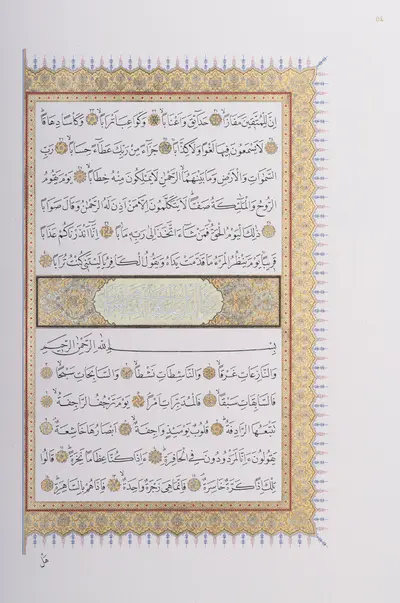 إن للمتقين مفازا حدائق وأعنابا وكواعب أترابا وكأسا دهاقا
لا يسمعون فيها لغوا ولا كذابا جزاء من ربك عطاء حسابا رب
السموات والأرض وما بينهما الرحمن لا يملكون منه خطابا يوم يقوم
الروح والملئكة صفا لا يتكلمون إلا من أذن له الرحمن وقال صوابا
ذلك اليوم الحق فمن شاء اتخذ إلى ربه مابا إنا أنذرناكم عذابا
قريبا يوم ينظر المرء ما قدمت يداه ويقول الكافر يا ليتني كنت ترابا
بسم الله الرحمن الرحيم
والنازعات غرقا والناشطات نشطا والسابحات سبحا
فالسابقات سبقا فالمدبرات أمرا يوم ترجف الراجفة
تتبعها الرادفة قلوب يومئذ واجفة أبصارها خاشعة
يقولون ءإنا لمردودون في الحافرة ءإذا كنا عظاما نخرة قالوا
تلك إذا كرة خاسرة فإنما هي زجرة واحدة فإذا هم بالساهرة
هل